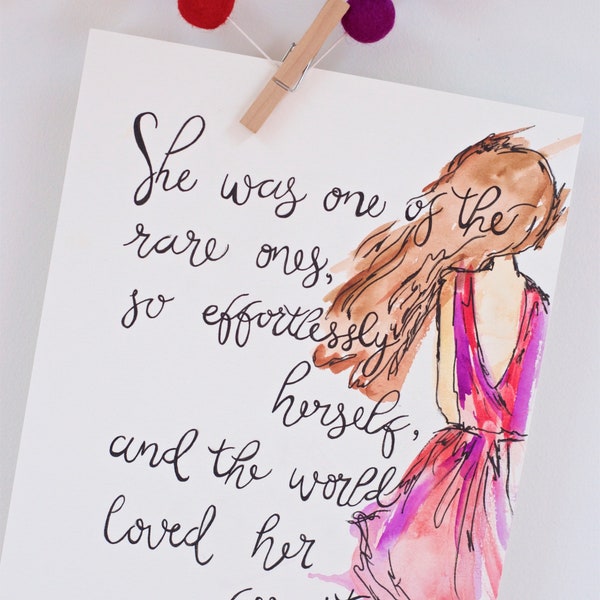 She was one of the
rare ones,
so effortlessly
herself,
and the world
loved her
for it